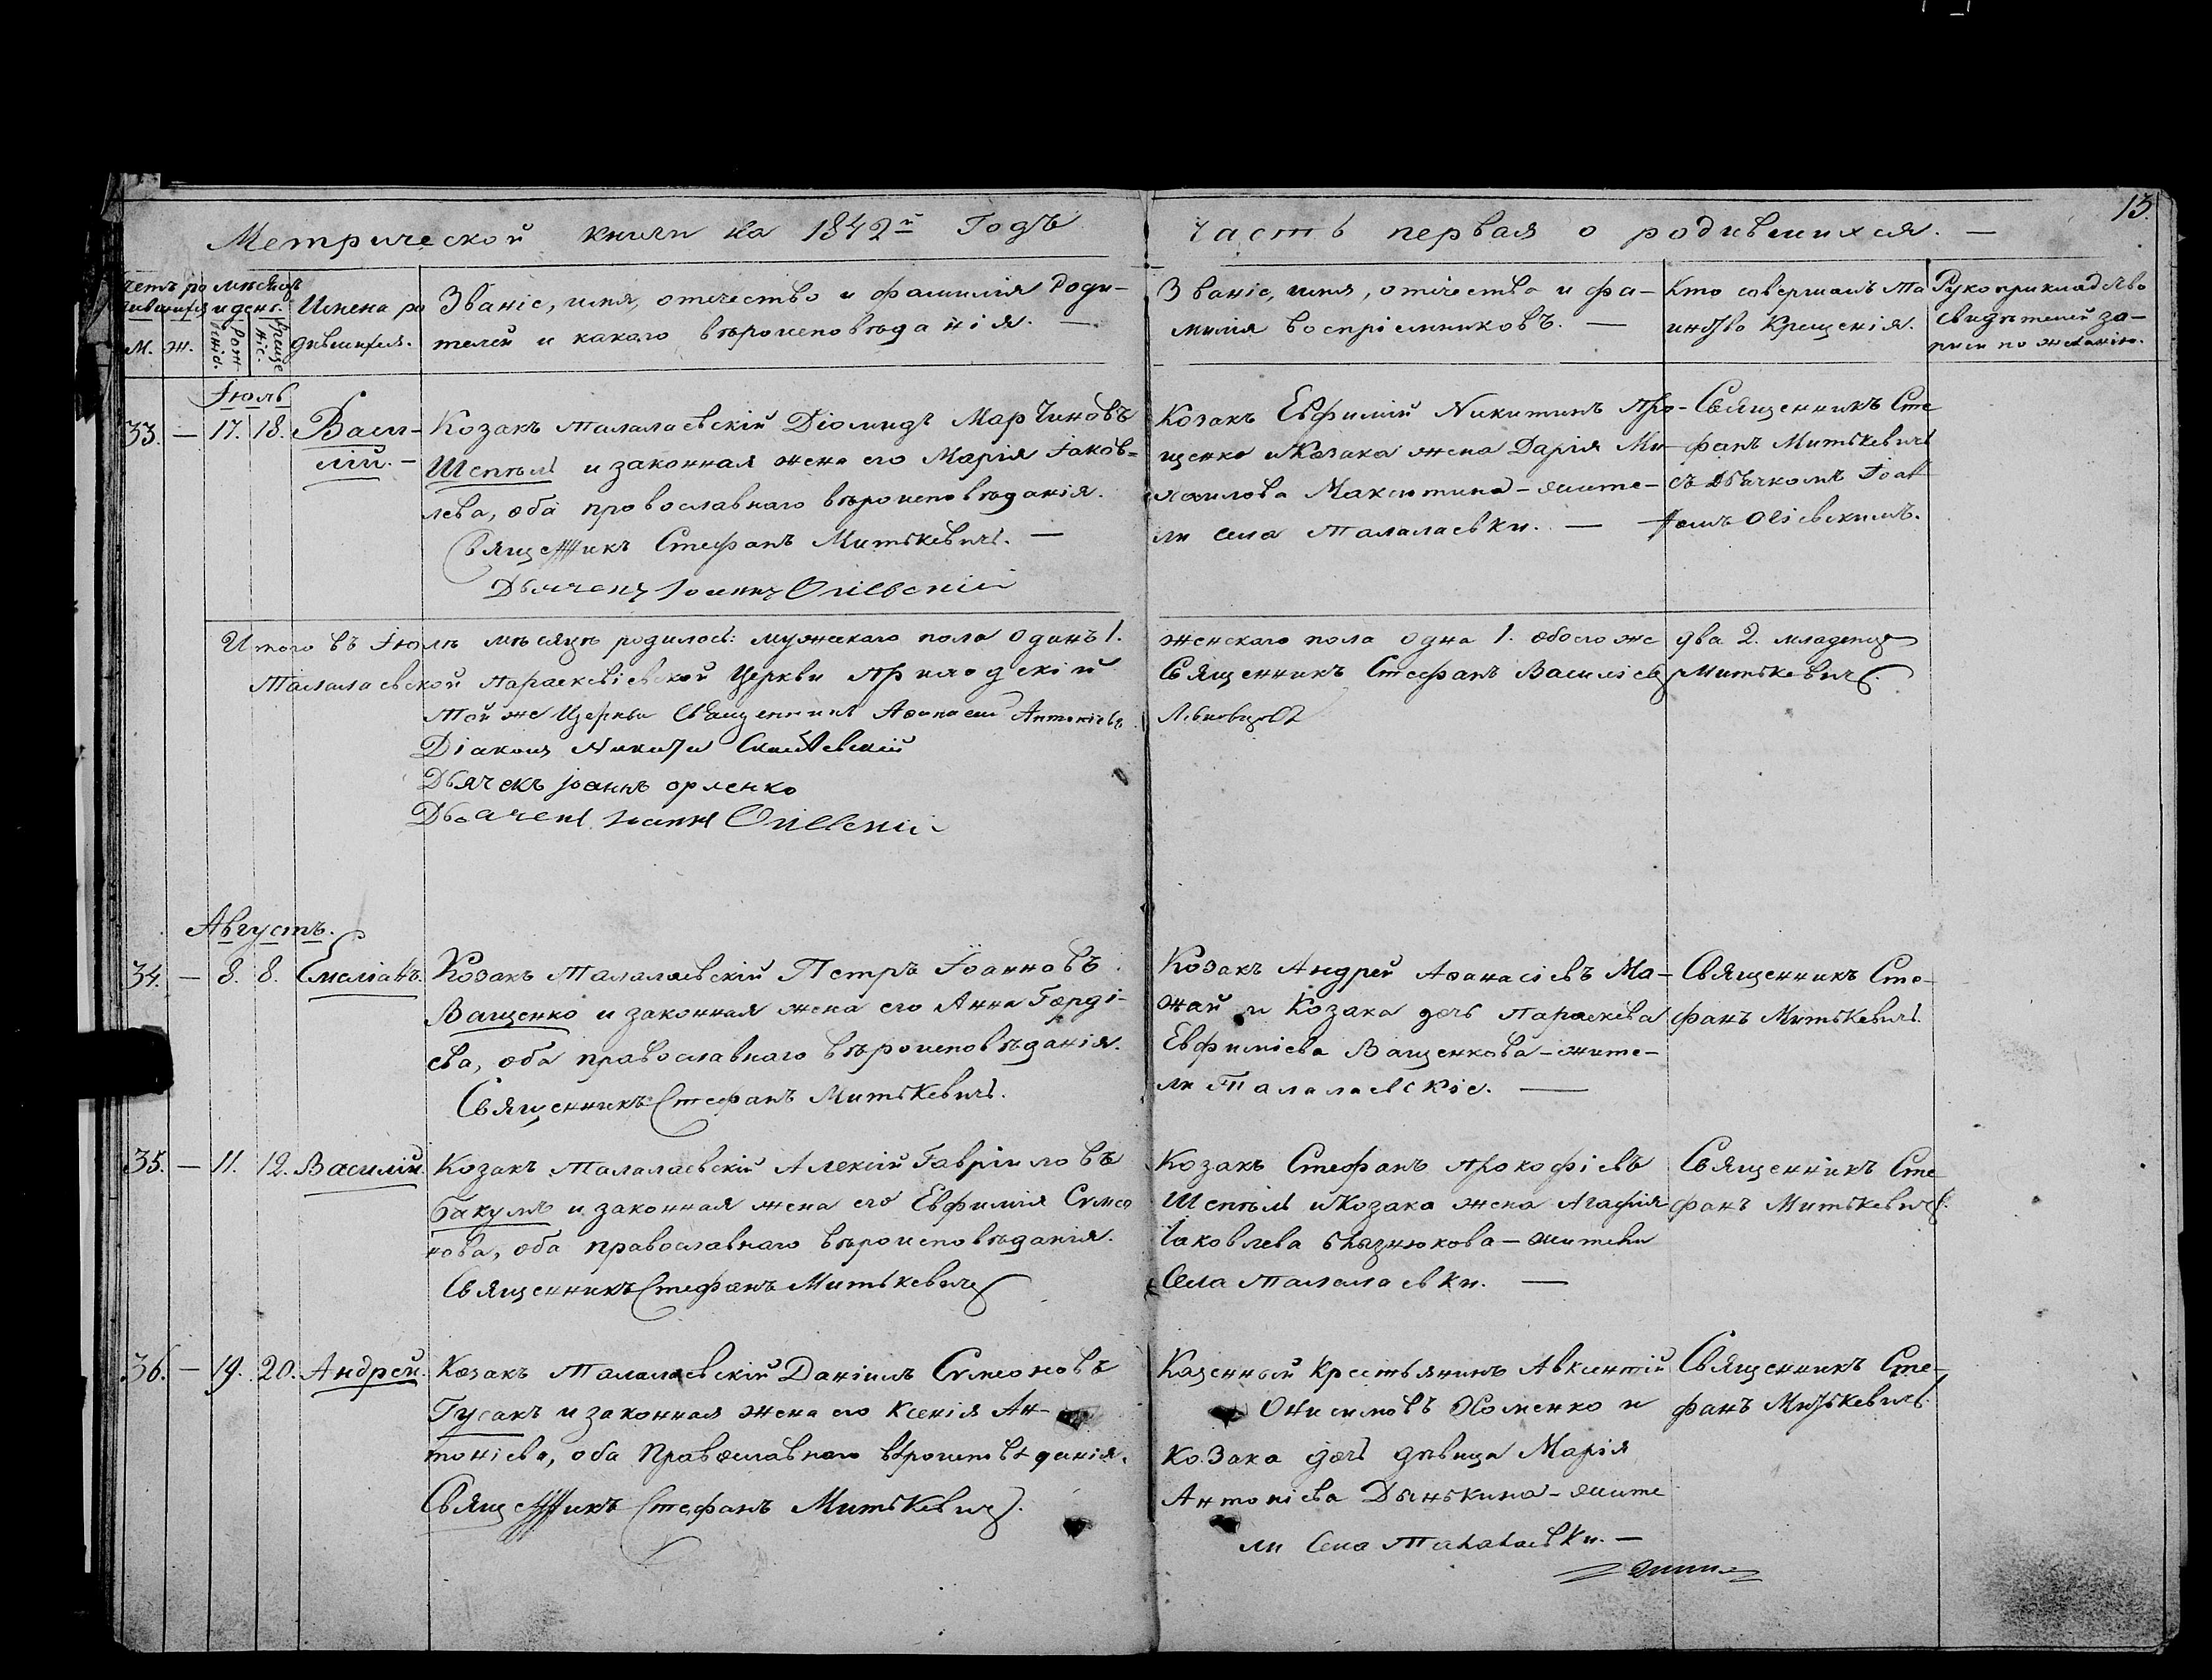 Метрической книги на 1842й Годъ
Часть первая о родившихся. —
13.
Счетъ ро
дившихся
М. Ж.
Мѣсяцъ
и день.
Рож-
денія.
Креще
нія.
Имена ро
дившихся.
Званіе, имя, отечество и фамилія Роди-
телей и какого вѣроисповѣданія. —
Званіе, имя, отечество и фа-
милія воспріемниковъ. —
Кто совершалъ та
инство Крещенія.
Рукоприкладство
свидѣтелей за-
писи по желанію.
Іюль
33. — 17. 18. Васи-
лій. —
Козакъ Талалаевскій Діомидъ Мартиновъ
Шепѣль и законная жена его Марія Іаков-
лева, оба провославнаго вѣроисповѣданія.
Священникъ Стефанъ Митькевичъ. —
Дьячекъ Іоаннъ
Козакъ Евфимій Никитинъ Про-
щенко и Козака жена Дарія Ми-
хаилова Максютина — жите-
ли села Талалаевки. —
Священникъ Сте
фанъ Митькевичъ
съ Дьячкомъ Іоан
номъ
Итого въ Іюлѣ мѣсяцѣ родилось: мужескаго пола одинъ 1.
женскаго пола одна 1. обоего же два 2. младенца
Талалаевской Параскевіевской Церкви Приходскій
Священникъ Стефанъ Василіевъ Митькевичъ.
Той же Церкви Священникъ Афанасій Антоніевъ
Діаконъ Никита
Дьячекъ іоаннъ орленко
Дьячекъ Іоаннъ
Августъ.
34. — 8. 8. Емеліанъ.
Козакъ Талалаевскій Петръ Іоанновъ
Ващенко и законная жена его Анна Горді-
ева, оба православнаго вѣроисповѣданія.
Священникъ Стефанъ Митькевичъ.
Козакъ Андрей Афанасіевъ Ма-
жай и Козака дочь Параскева
Евфиміева Ващенкова — жите-
ли Талалаевскіе. —
Священникъ Сте-
фанъ Митькевичъ.
35. — 11. 12. Василій.
Козакъ Талалаевскій Алексій Гавріиловъ
Бакумъ и законная жена его Евфимія Сѵмео
нова, оба православнаго вѣроисповѣданія.
Священникъ Стефанъ Митькевичъ
Козакъ Стефанъ Прокофіевъ
Шепѣль и Козака жена Агафія
Іаковлева — жители
Села Талалаевки. —
Священникъ Сте
фанъ Митькевичъ.
36. — 19. 20. Андрей.
Козакъ Талалаевскій Даніилъ Сѵмеоновъ
Гусакъ и законная жена его Ксенія Ан-
тоніева, оба Православнаго вѣроисповѣданія.
Священникъ Стефанъ Митькевичъ.
Казенный Крестьянинъ Авксентій
Онисимовъ Хоменко и
Козака дочь дѣвица Марія
Антоніева Дынькина — жите
ли Села Талалаевки. —
Священникъ Сте-
фанъ Митькевичъ.